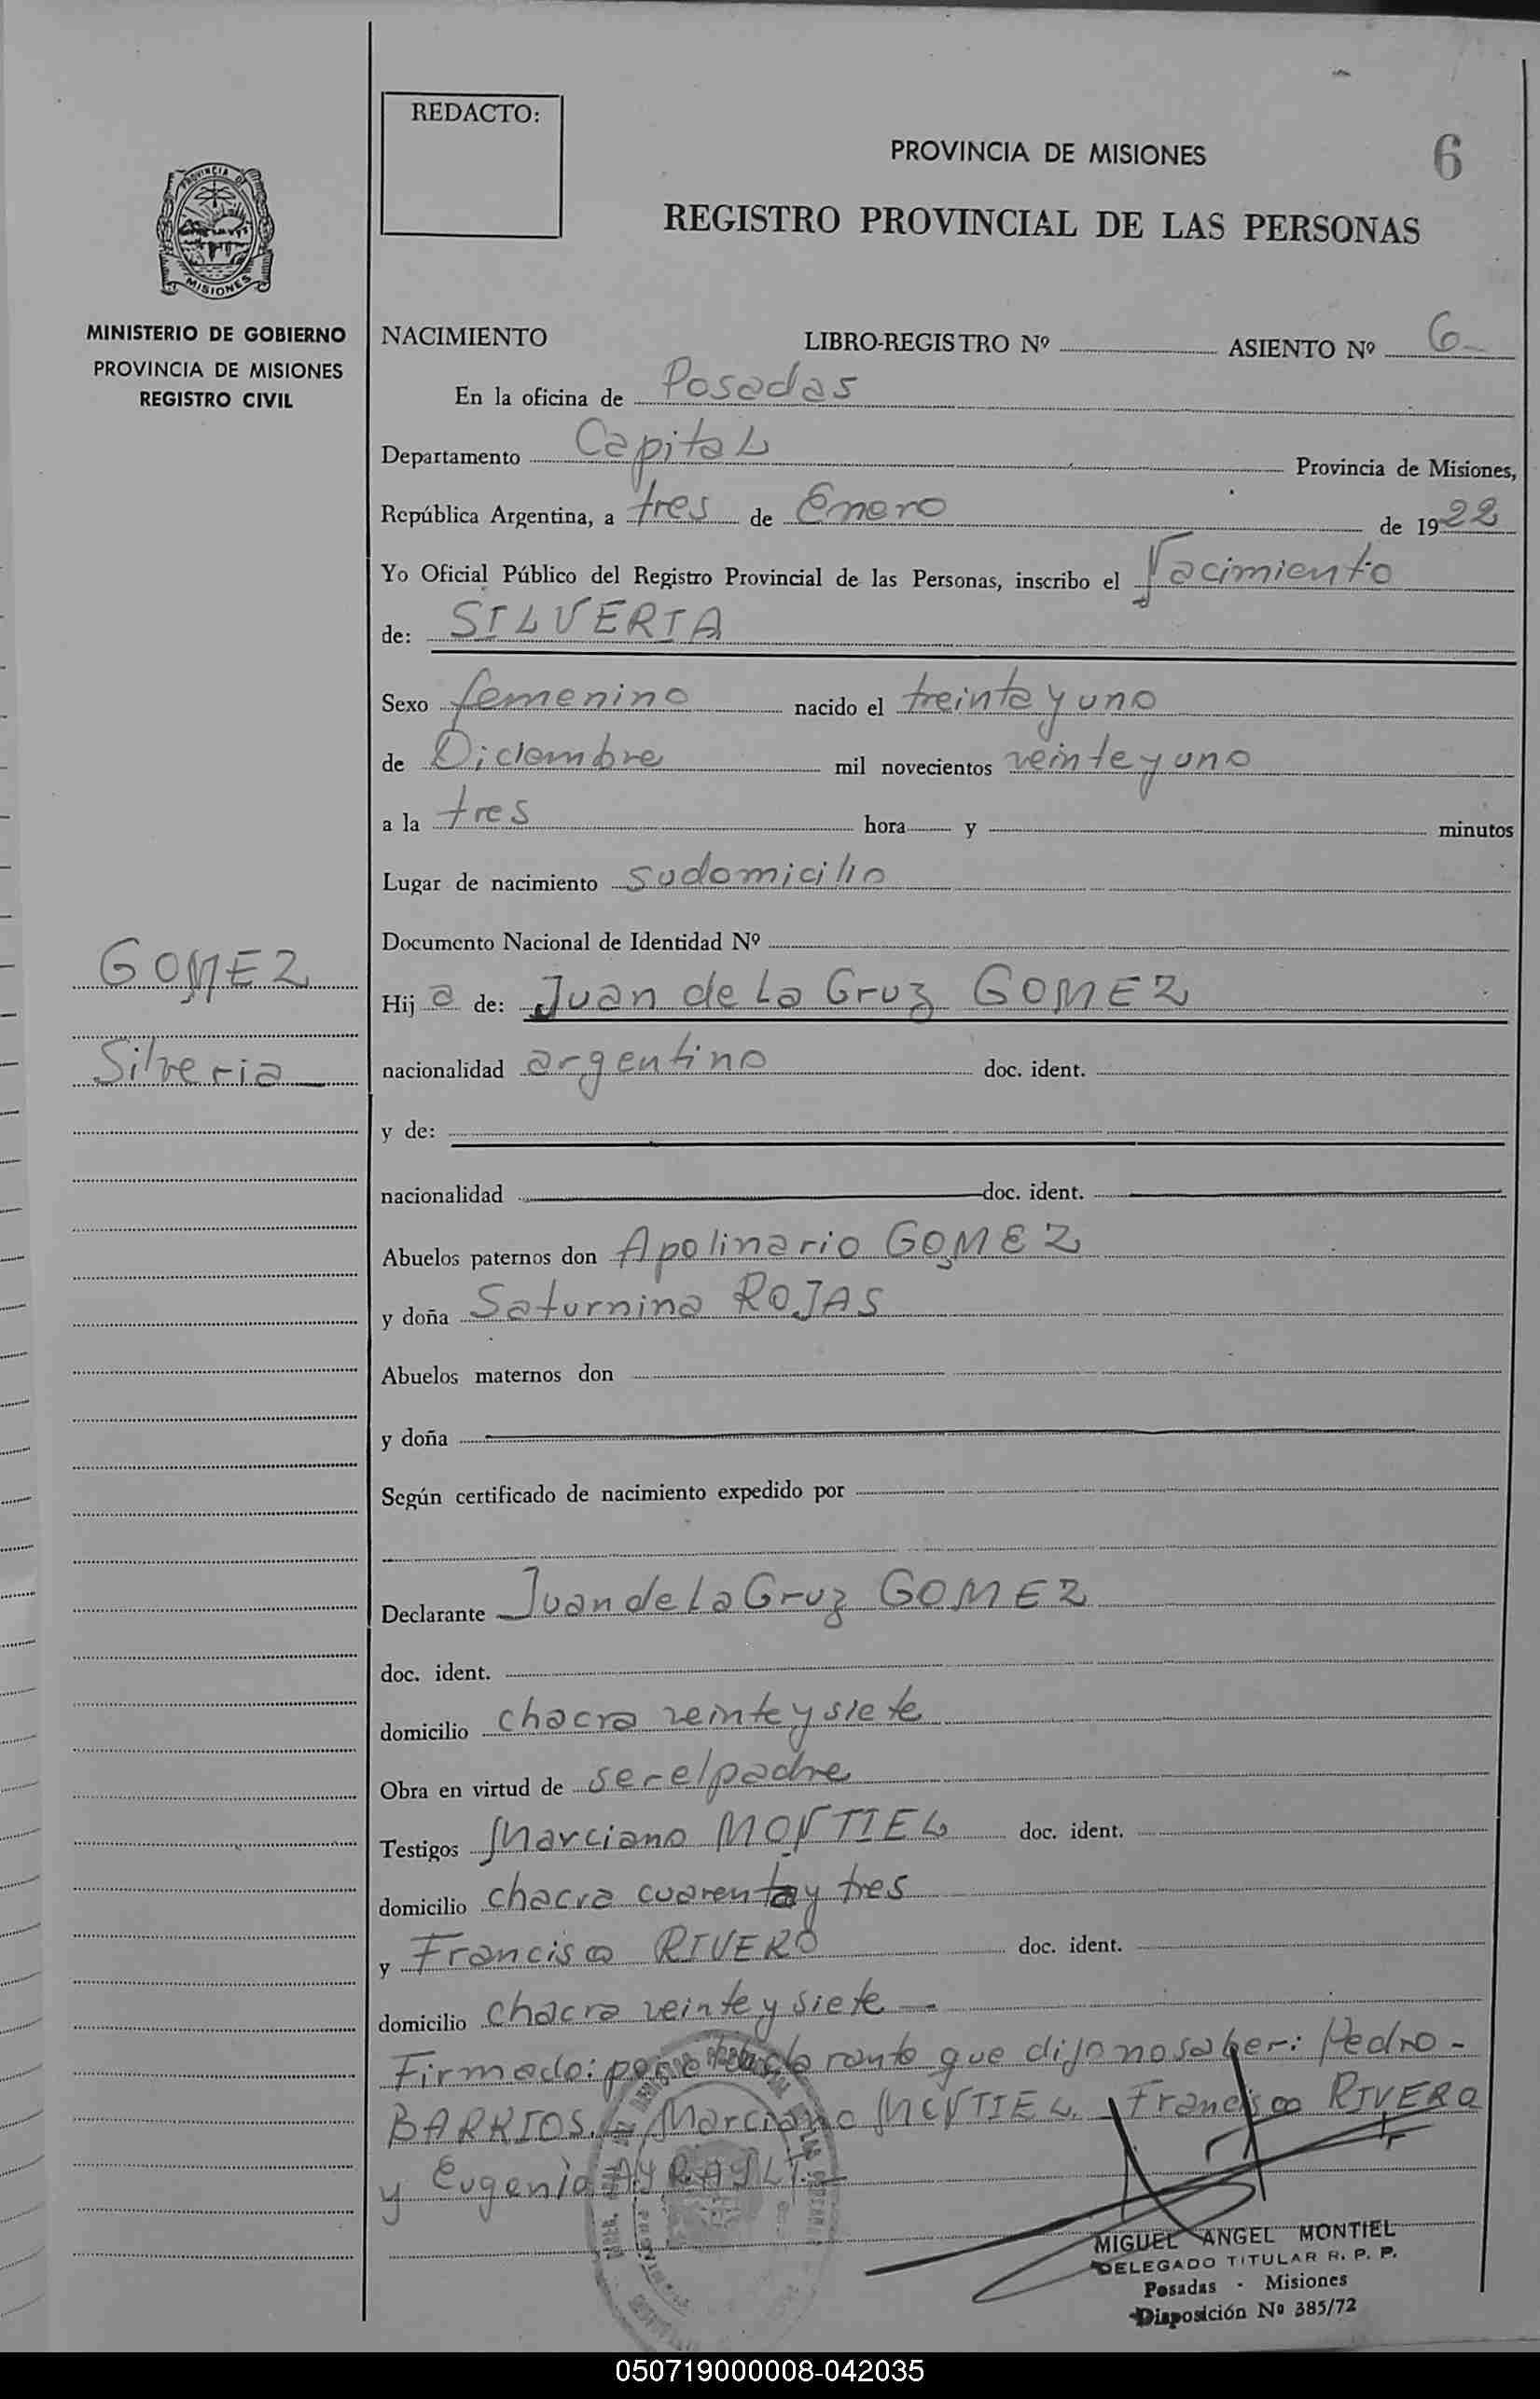 REDACTO:
PROVINCIA DE MISIONES
6
REGISTRO PROVINCIAL DE LAS PERSONAS
PROVINCIA DE
MISIONES
MINISTERIO DE GOBIERNO
PROVINCIA DE MISIONES
REGISTRO CIVIL
NACIMIENTO LIBRO-REGISTRO Nº ASIENTO Nº 6
En la oficina de Posadas
Departamento Capital Provincia de Misiones,
República Argentina, a tres de Enero de 1922
Yo Oficial Público del Registro Provincial de las Personas, inscribo el Nacimiento
de: SILVERIA
Sexo femenino nacido el treinta y uno
de Diciembre mil novecientos veinte y uno
a la tres hora y minutos
Lugar de nacimiento su domicilio
Documento Nacional de Identidad Nº
GOMEZ
Silveria
Hija de: Juan de La Cruz GOMEZ
nacionalidad argentino doc. ident.
y de:
nacionalidad doc. ident.
Abuelos paternos don Apolinario GOMEZ
y doña Saturnina ROJAS
Abuelos maternos don
y doña
Según certificado de nacimiento expedido por
Declarante Juan de La Cruz GOMEZ
doc. ident.
domicilio chacra veinte y siete
Obra en virtud de ser el padre
Testigos Marciano MONTIEL doc. ident.
domicilio chacra cuarenta y tres
y Francisco RIVERO doc. ident.
domicilio chacra veinte y siete
Firmado: por el declarante que dijo no saber: Pedro -
BARRIOS. Marciano MONTIEL. Francisco RIVERO
y Eugenio
MIGUEL ANGEL MONTIEL
DELEGADO TITULAR R. P. P.
Posadas - Misiones
Disposición Nº 385/72
050719000008-042035